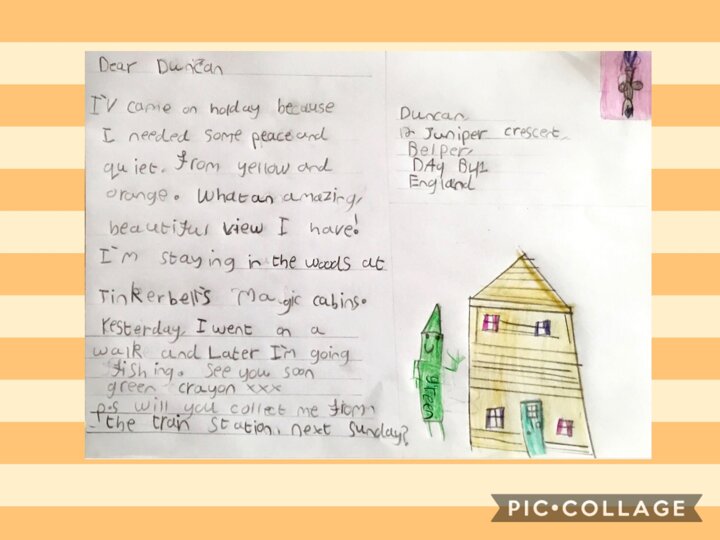 Dear Duncan
I'V came on holday because
I needed some peace and
quiet. from yellow and
orange. What an amazing,
beautiful view I have!
I'm staying in the woods at
Tinkerbell's Magic cabins.
Yesterday, I went on a
walk and Later I'm going
fishing. See you soon
green crayon xxx
p.s will you collect me from
the train station, next sunday?
Duncan
Juniper crescent,
Belper,
D4y By1
England
green
PIC•COLLAGE